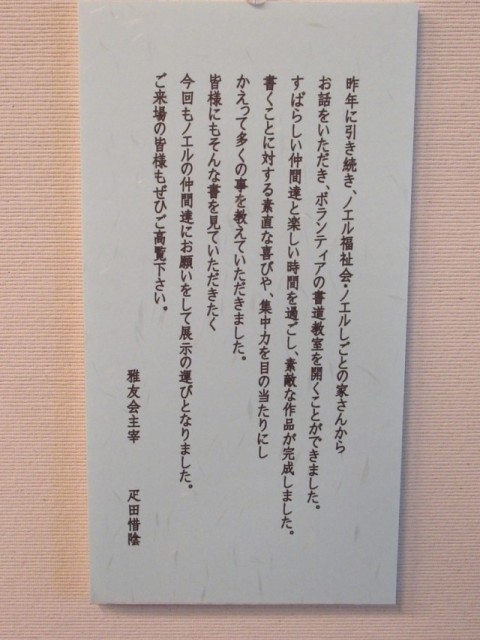 昨年に引き続き、ノエル福祉会・ノエルしごとの家さんから
お話をいただき、ボランティアの書道教室を開くことができました。
すばらしい仲間達と楽しい時間を過ごし、素敵な作品が完成しました。
書くことに対する素直な喜びや、集中力を目の当たりにし
かえって多くの事を教えていただきました。
皆様にもそんな書を見ていただきたく
今回もノエルの仲間達にお願いをして展示の運びとなりました。
ご来場の皆様もぜひご高覧下さい。
雅友会主宰 疋田惜陰